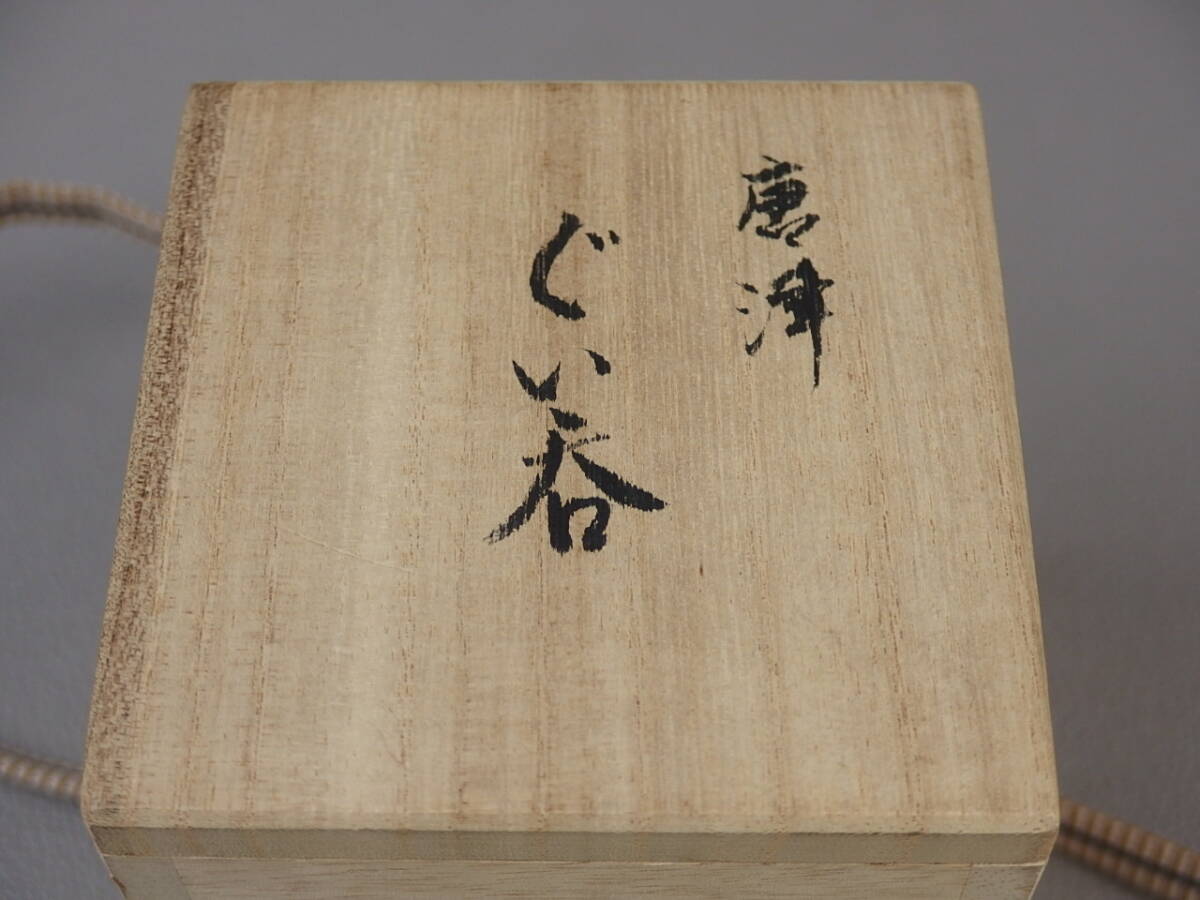 唐津
ぐい呑